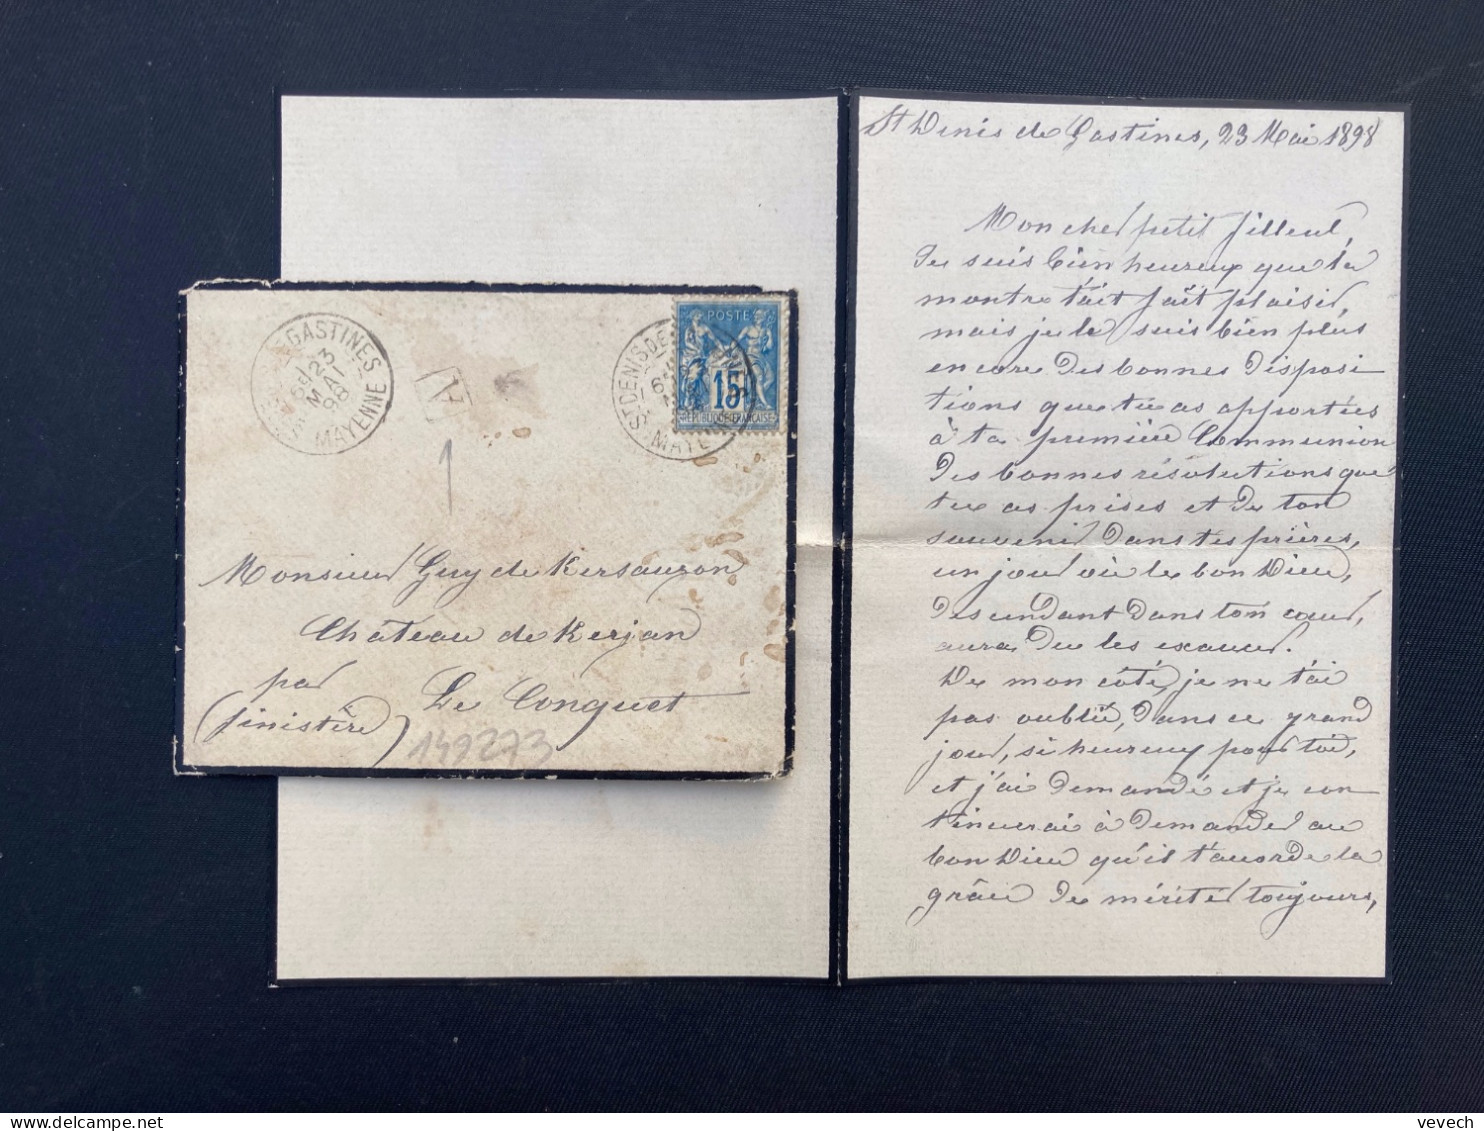 GASTINES
6E
23
MAI
98
MAYENNE
ST DENIS DE
MAYE
POSTE
15
REPUBLIQUE FRANCAISE
A
1
Monsieur Guy de Kersauzon
Château de Kerjan
par Le Conquet
(finistère)
149273
St Denis de Gastines, 23 Mai 1898
Mon cher petit filleul,
Je suis bien heureux que ta
montre t'ait fait plaisir,
mais je le suis bien plus
encore des bonnes disposi
tions que tu as apportées
à ta première Communion
des bonnes résolutions que
tu as prises et de ton
souvenir dans tes prières,
un jour où le bon Dieu,
descendant dans ton cœur,
aura du les exaucer.
De mon côté, je ne t'ai
pas oublié, dans ce grand
jour, si heureux pour toi,
et j'ai demandé et je con
tinuerai à demander au
bon Dieu qu'il t'accorde la
grâce de mériter toujours,
vevech
www.delcampe.net